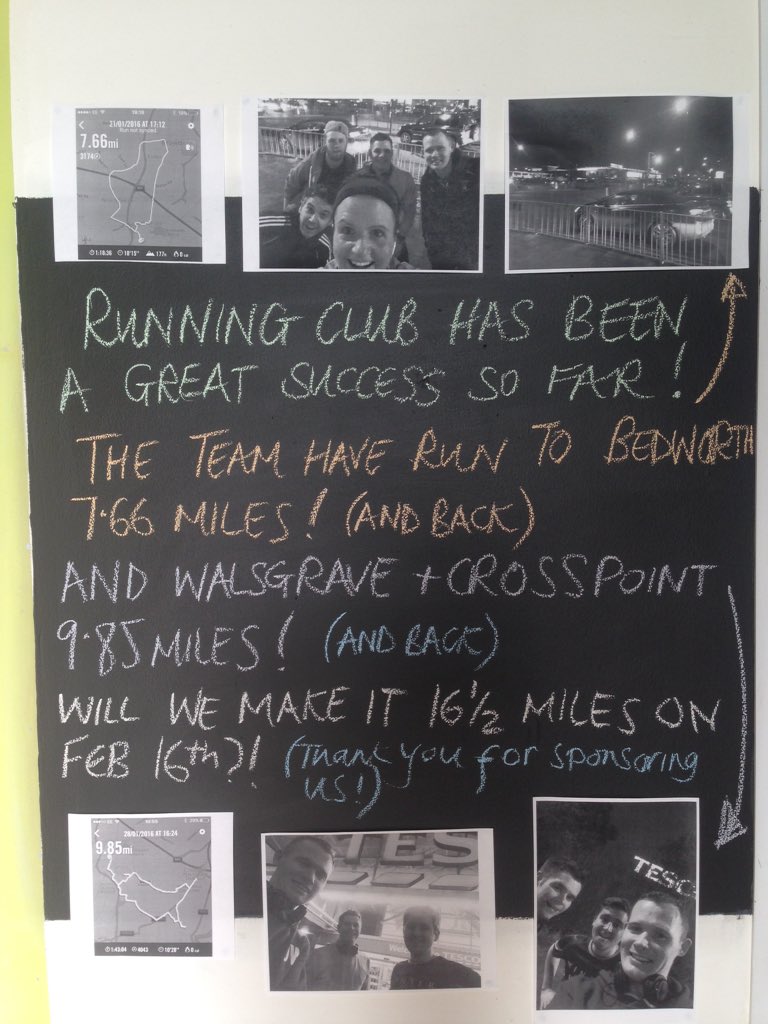 21/01/2016 AT 17:12
Run not synced
7.66mi
3174
1:18:36 10'15" 177k 0
RUNNING CLUB HAS BEEN
A GREAT SUCCESS SO FAR!
THE TEAM HAVE RUN TO BEDWORTH
7.66 MILES! (AND BACK)
AND WALSGRAVE + CROSSPOINT
9.85 MILES! (AND BACK)
WILL WE MAKE IT 16½ MILES ON
FEB 16th?! (Thank you for sponsoring
US!)
28/01/2016 AT 16:24
9.85mi
1:43:04 4043 10'28" 0
TESCO
TESCO
TESC